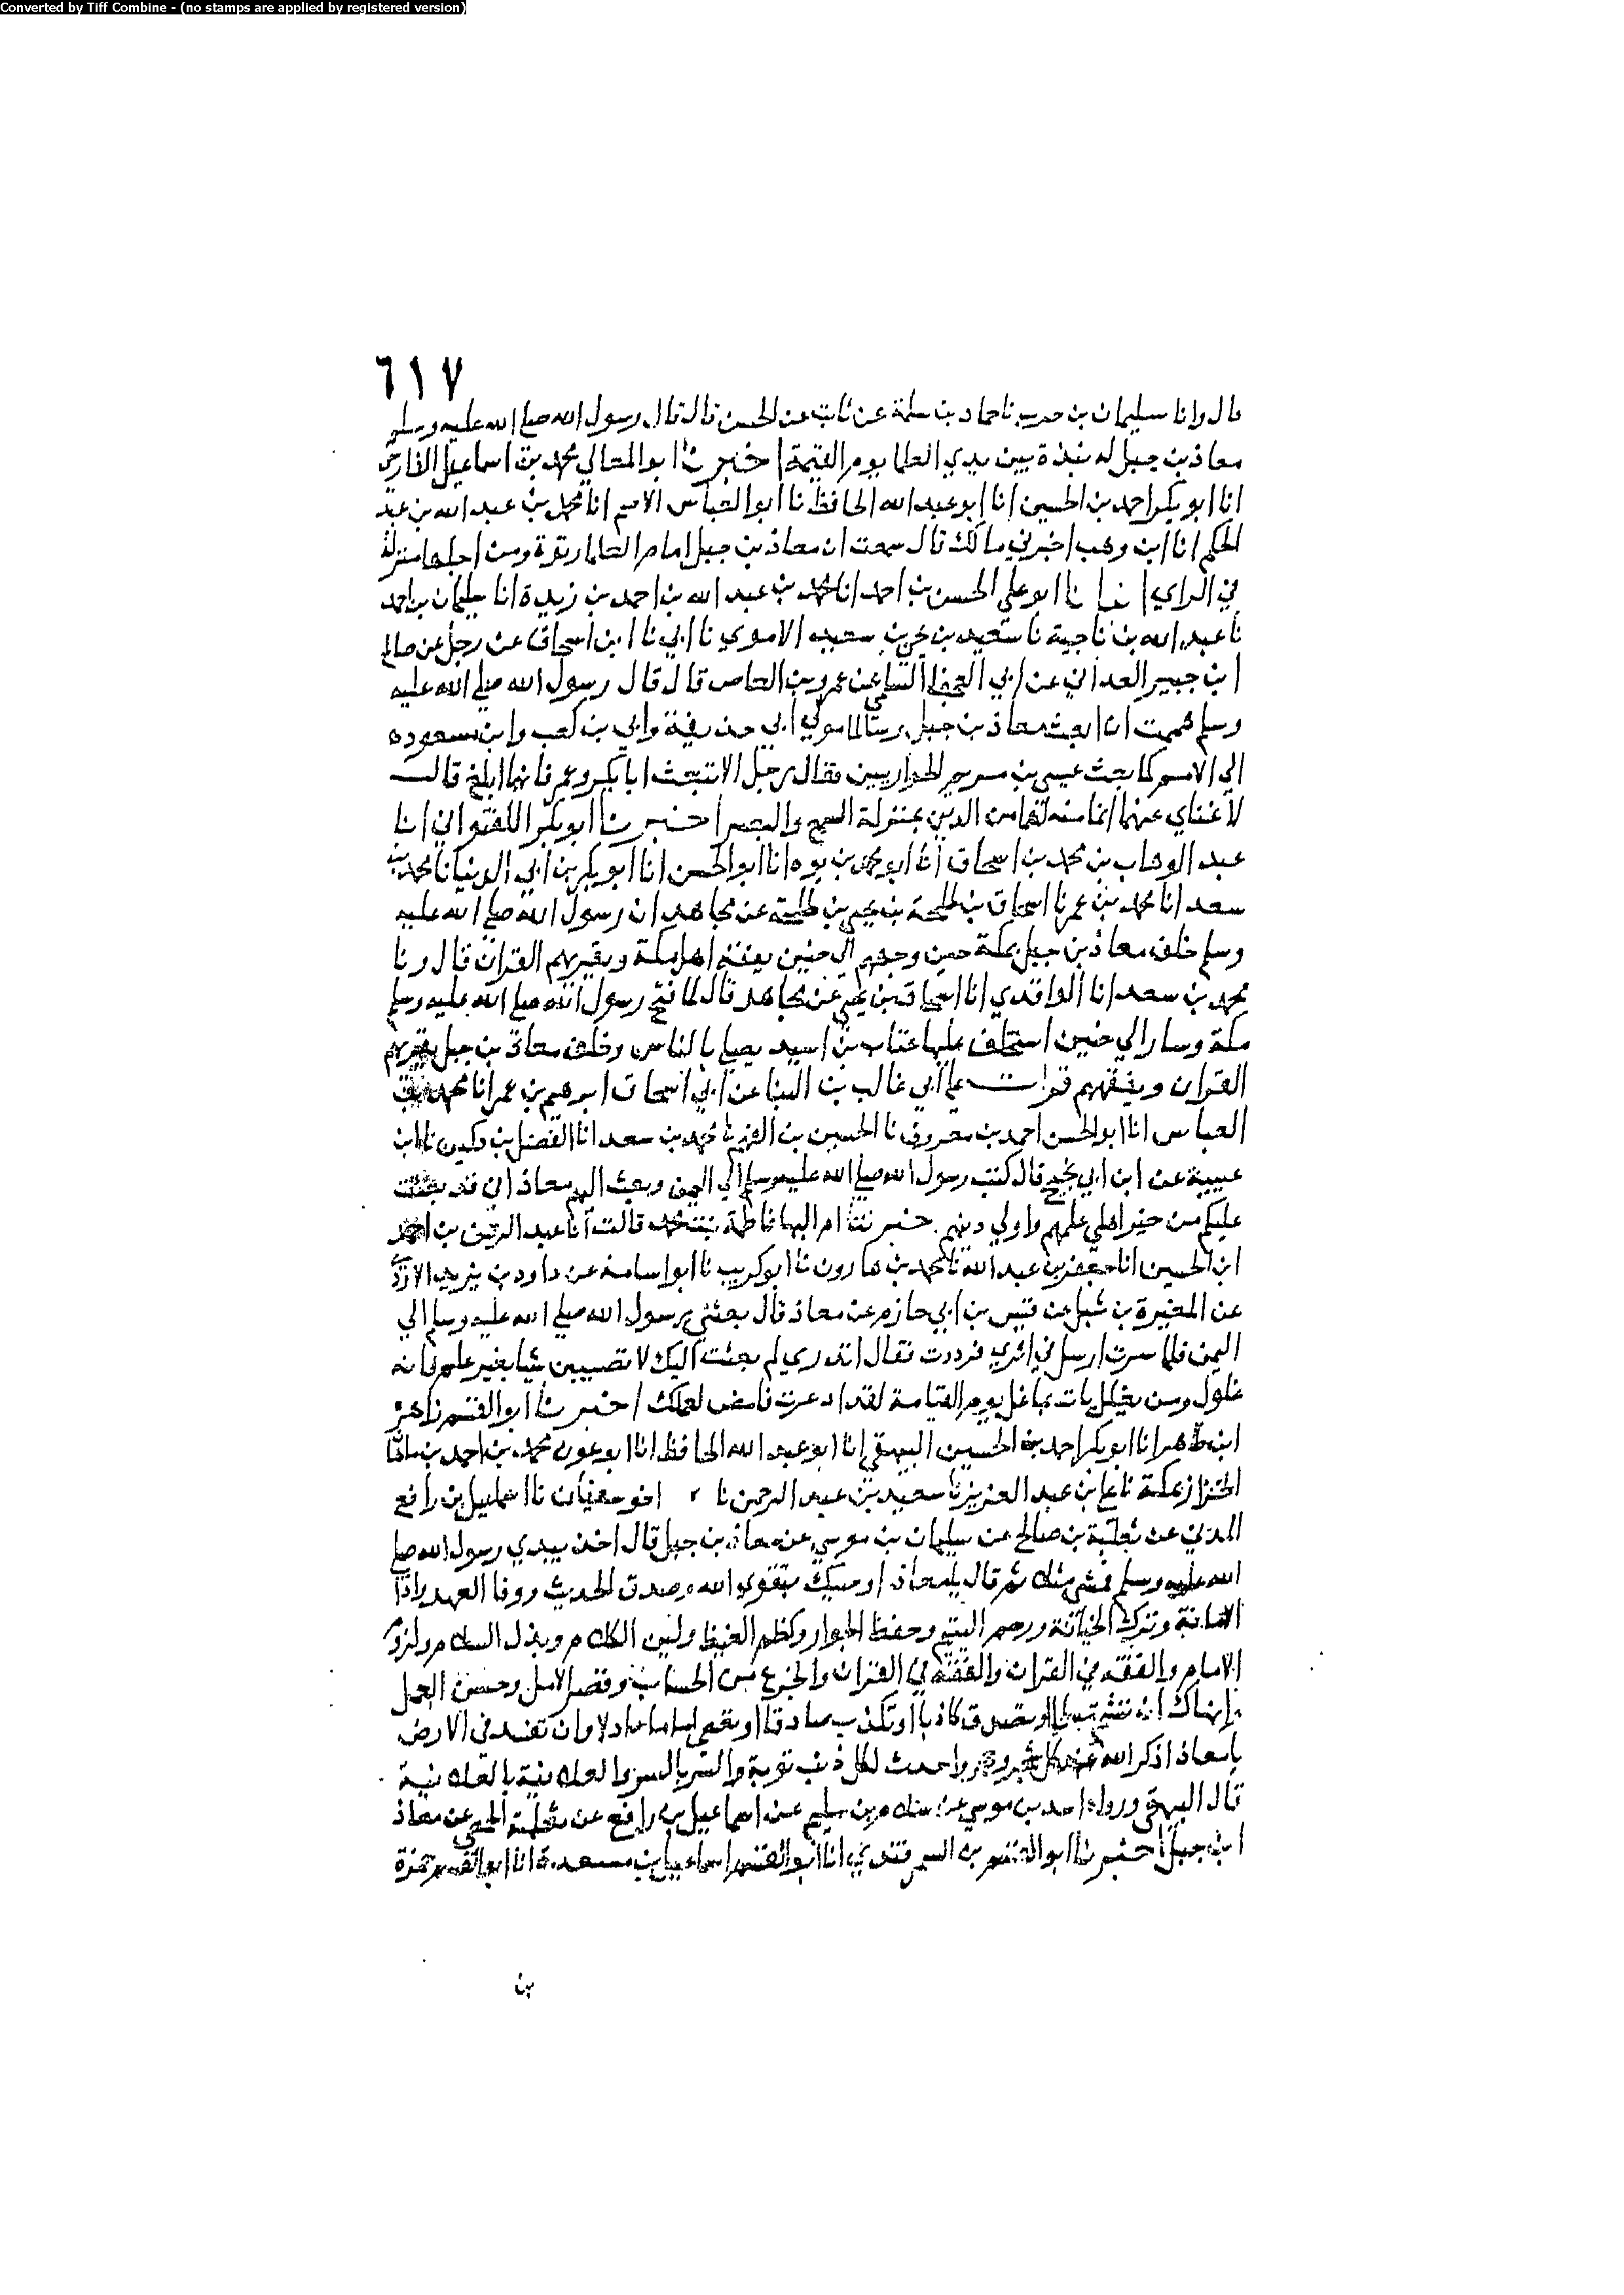 Converted by Tiff Combine - (no stamps are applied by registered version)
٦١٧
قال وانا سليمان بن حرب نا حماد بن سلمة عن ثابت عن الحسن قال قال رسول الله صلي الله عليه وسلم
معاذ بن جبل له نبذة بين يدي العلما يوم القيمة اخبرنا ابو المعالي محمد بن اسماعيل الفارسي
انا ابو بكر احمد بن الحسين انا ابو عبد الله الحافظ نا ابو العباس الاصم انا محمد بن عبد الله بن عبد
الحكم انا ابن وهب اخبرني مالك قال سمعت ان معاذ بن جبل امام العلما رتوة ومن اجلها منزلة
في الراي انبانا ابو علي الحسن بن احمد انا محمد بن عبد الله بن احمد بن زيدة انا سليمان بن احمد
نا عبد الله بن ناجية نا سعيد بن يحيى بن سعيد الاموي نا ابي نا ابن اسحاق عن رجل عن صالح
ابن جبير العداني عن ابي العجفا السلمي عن عمرو بن العاص قال قال رسول الله صلي الله عليه
وسلم هممت ان ابعث معاذ بن جبل وسالما مولي ابي حذيفة وابي بن كعب وابن مسعود
الي الامم كما بعث عيسى بن مريم الحواريين فقال رجل الا تبعث ابا بكر وعمر فانهما ابلغ قالــ
لا غناي عنهما انما منزلتهما من الدين بمنزلة السمع والبصر اخبرنا ابو بكر اللفتواني انا
عبد الوهاب بن محمد بن اسحاق انا ابو محمد بن يوه انا ابو الحسن انا ابو بكر بن ابي الدنيا نا محمد بن
سعد انا محمد بن عمر نا اسحاق بن طلحة بن يحيى بن طلحة عن مجاهد ان رسول الله صلي الله عليه
وسلم خلف معاذ بن جبل بمكة حين وجه الي حنين يفقه اهل مكة ويقريهم القران قال ونا
محمد بن سعد انا الواقدي انا اسحاق بن يحيى عن مجاهد قال لما فتح رسول الله صلي الله عليه وسلم
مكة وسار الي حنين استخلف عليها عتاب بن اسيد يصلي بالناس وخلف معاذ بن جبل يقريهم
القران ويفقههم قراتـــ علي ابي غالب بن البنا عن ابي اسحاق ابرهيم بن عمر انا محمد بن
العباس انا ابو الحسن احمد بن معروف نا الحسين بن الفهم نا محمد بن سعد انا الفضل بن دكين نا ابن
عيينة عن ابن ابي نجيح قال كتب رسول الله صلي الله عليه وسلم الي اليمن وبعث اليهم معاذ اني قد بعثت
عليكم من خير اهلي علمهم واولي دينهم. خبرتنا ام البها فاطمة بنت محمد قالت انا عبد الرحمن بن احمد
ابن الحسين انا جعفر بن عبد الله نا محمد بن هارون نا ابو كريب نا ابو اسامة عن داود بن يزيد الازدي
عن المغيرة بن شبل عن قيس بن ابي حازم عن معاذ قال بعثني رسول الله صلي الله عليه وسلم الي
اليمن فلما سرت ارسل في اثري فرددت فقال اتدري لم بعثت اليك لا تصيبن شيا بغير علم فانه
غلول ومن يغلل يات بما غل يوم القيامة لقد ادعرت فامض لعملك اخبرنا ابو القسم زاهر
ابن طاهر انا ابو بكر احمد بن الحسين البيهقي انا ابو عبد الله الحافظ انا ابو عون محمد بن احمد بن ماهان
الخزاز بمكة نا علي بن عبد العزيز نا سعيد بن عبد الرحمن نا اخو سفيان نا اسمعيل بن رافع
المدني عن ثعلبة بن صالح عن سليمان بن موسي عن معاذ بن جبل قال اخذ بيدي رسول الله صلي
الله عليه وسلم فمشي ميلا ثم قال يا معاذ اوصيك بتقوي الله وصدق الحديث ووفا العهد وادا
الامانة وترك الخيانة ورحم اليتيم وحفظ الجوار وكظم الغيظ ولين الكلام وبذل السلام ولزوم
الامام والفقه في القران والفقه في القران والجزع من الحساب وقصر الامل وحسن العمل
وانهاك ان تشتم مسلما او تصدق كاذبا او تكذب صادقا او تعصي اماما عادلا وان تفسد في الارض
يا معاذ اذكر الله عند كل شجر وحجر واحدث لكل ذنب توبة السر بالسر والعلانية بالعلانية
قال البيهقي ورواه اسد بن موسي عن سلام بن سليم عن اسماعيل بن رافع عن ثعلبة الحمصي عن معاذ
ابن جبل اخبرنا ابو القسم بن السمرقندي انا ابو القسم اسماعيل بن مسعدة انا ابو القسم حمزة
بن